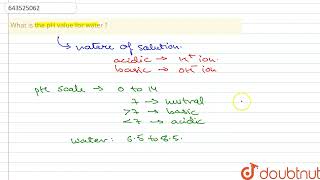 643525062
What is the pH value for water ?
nature of solution.
acidic → H⁺ ion.
basic → OH⁻ ion
pH scale → 0 to 14
7 → nutral
>7 → basic
<7 → acidic
water: 6.5 to 8.5.
doubtnut